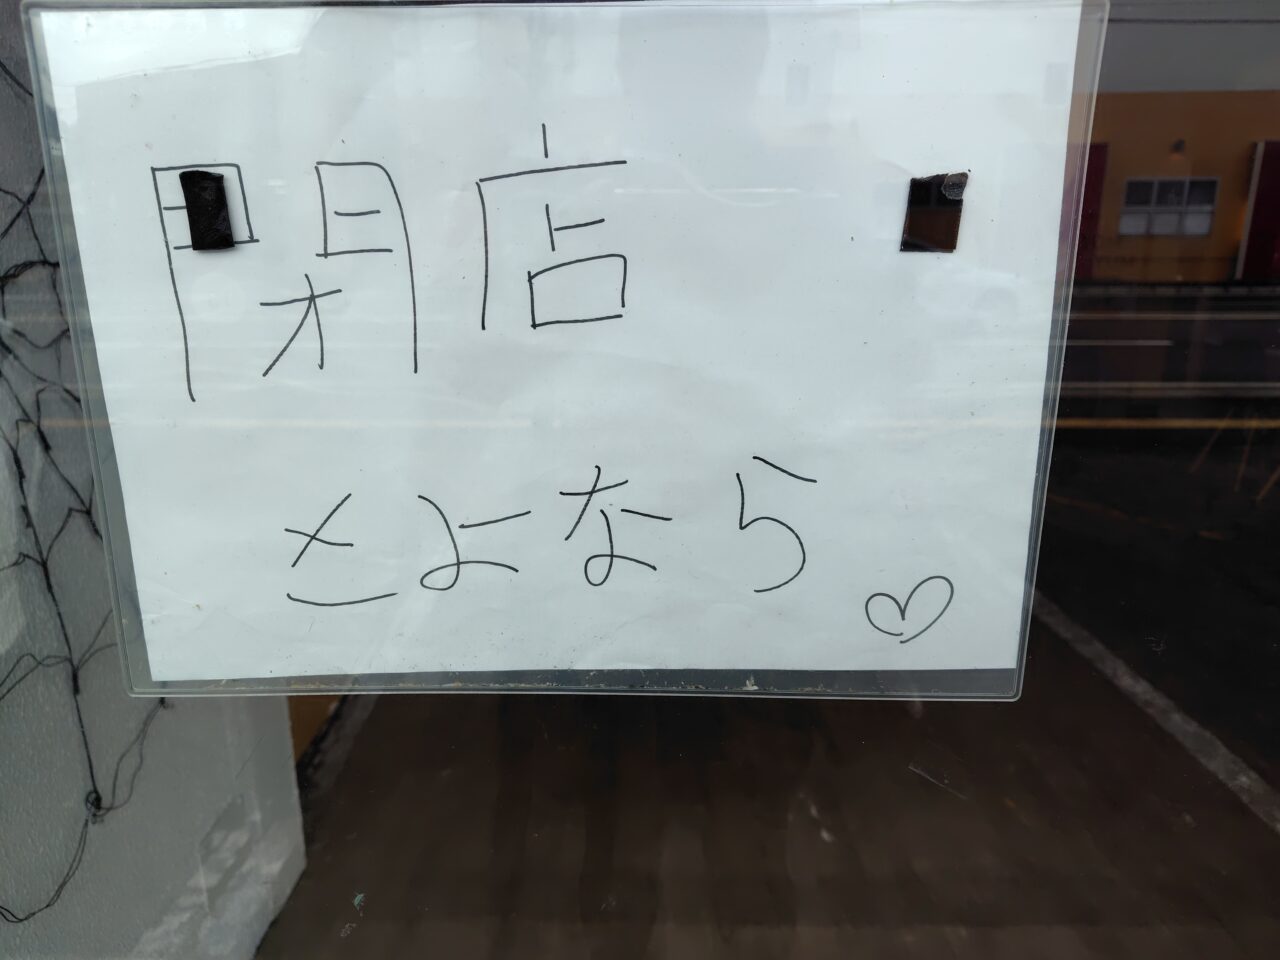 閉店
さよなら♡